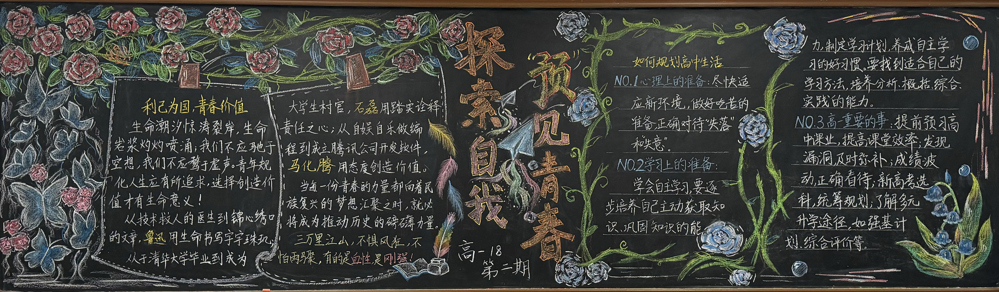 利己为国，青春价值
生命潮汐惊涛裂岸，生命
岩浆灼灼喷涌，我们不应驰于
空想，我们不应骛于虚声，青年规
化人生应有所追求，选择创造价
值才有生命意义！
从技术救人的医生到锦心绣口
的文章，鲁迅用生命书写字字珠玑，
从于清华大学毕业到成为
大学生村官，石磊用踏实诠释
责任之心；从自娱自乐做编
程到成立腾讯公司开发软件，
马化腾用态度创造价值。
当每一份青春的力量都向着民
族复兴的梦想汇聚之时，就必
将成为推动历史的磅礴力量，
三万里江山，不惧风水，不
怕雨骤，有的是血性是刚强！
探索自我
"预见青春
高一18
第二期
如何规划高中生活
NO.1心理上的准备：尽快适
应新环境，做好吃苦的
准备，正确对待"失落"
和失意。
NO.2学习上的准备：
学会自主学习，要逐
步培养自己主动获取知
识、巩固知识的能
力，制定学习计划，养成自主学
习的好习惯，要找到适合自己的
学习方法，培养分析、概括、综合、
实践的能力。
NO.3高一重要的事：提前预习高
中课业，提高课堂效率，发现
漏洞及时弥补；成绩波
动，正确看待，新高考选
科，统筹规划，了解多元
升学途径，如强基计
划，综合评价等。